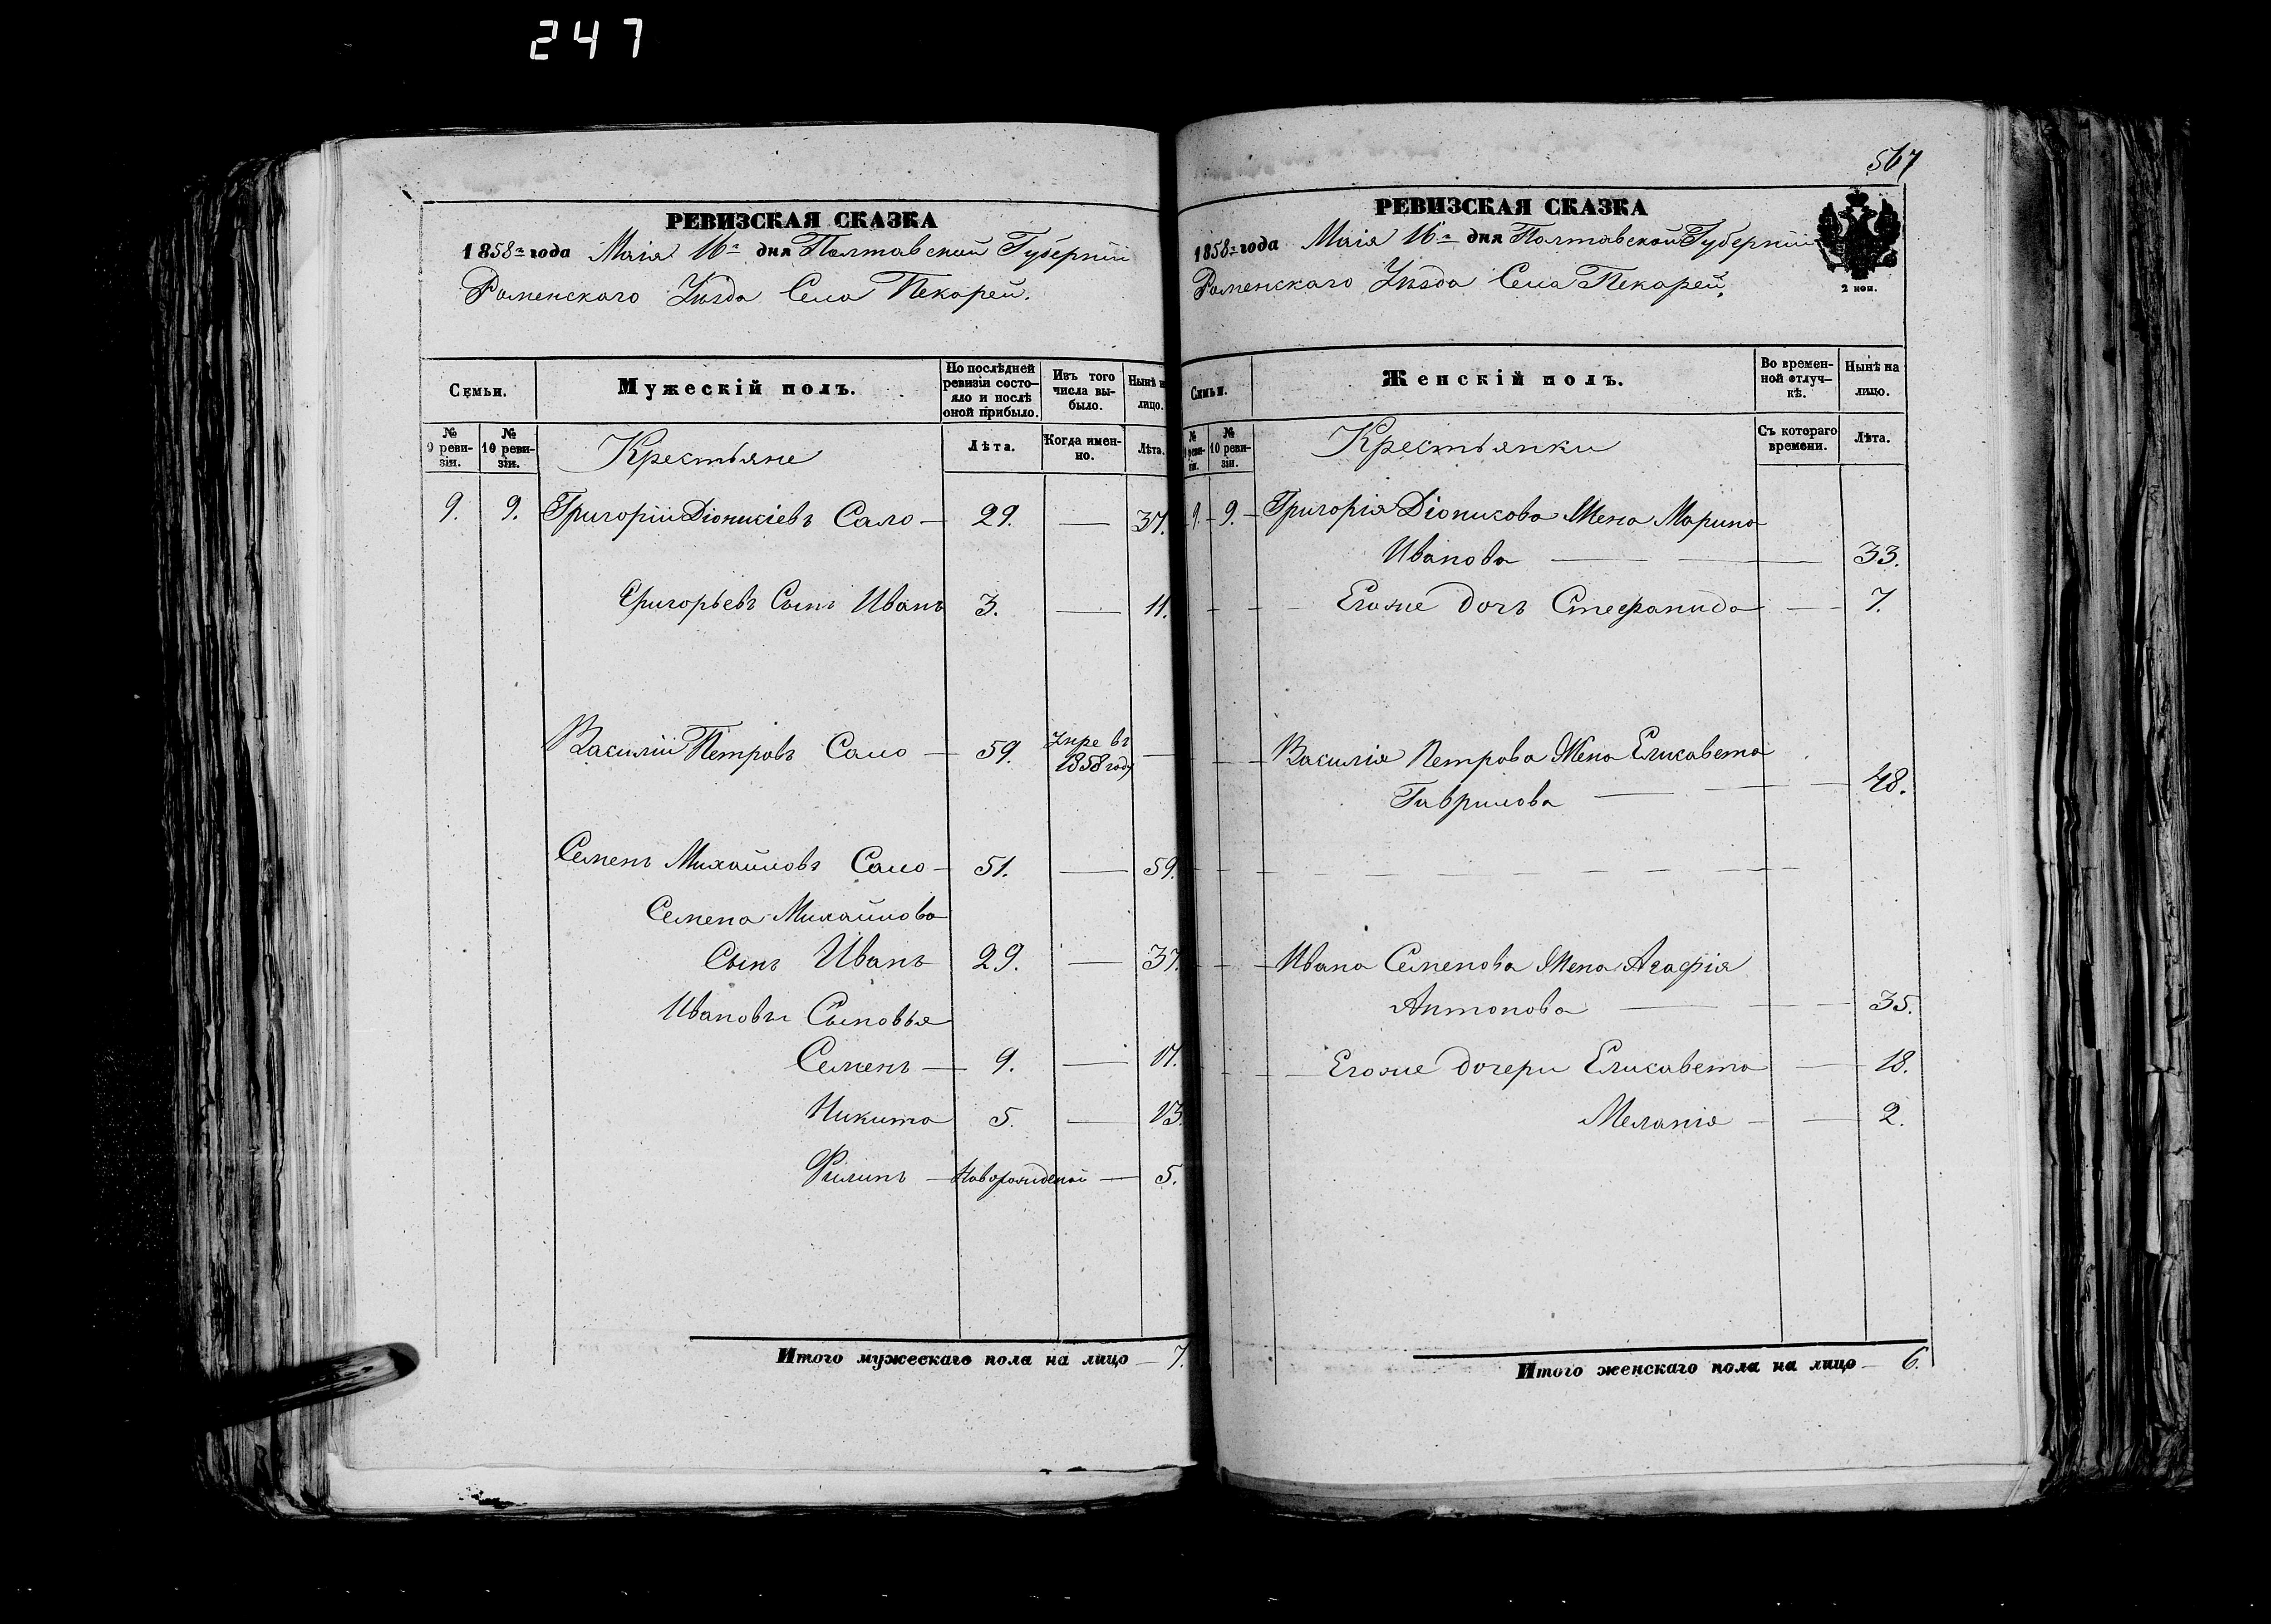 247
567
РЕВИЗСКАЯ СКАЗКА
1858го года Маія 16го дня Полтавской Губерніи
Роменскаго Уѣзда Села Пекарей.
Семьи.
Мужескій полъ.
По послѣдней ревизіи состояло и послѣ оной прибыло.
Изъ того числа выбыло.
Нынѣ н лицо.
№ 9 ревизіи.
№ 10 ревизіи.
Крестьяне
Лѣта.
Когда именно.
Лѣта.
9. 9. Григорій Діонисіевъ Сало — 29. — 37.
Григорьевъ Сынъ Иванъ 3. — 11.
Василій Петровъ Сало — 59. умре въ 1858 году —
Семенъ Михайловъ Сало — 51. — 59.
Семена Михайлова
Сынъ Иванъ 29. — 37.
Ивановы Сыновья
Семенъ — 9. — 17.
Никита 5. — 13.
Филипъ — Новорожденой — 5.
Итого мужескаго пола на лицо — 7.
РЕВИЗСКАЯ СКАЗКА
1858го года Маія 16го дня Полтавской Губерніи
Роменскаго Уѣзда Села Пекарей.
2 коп.
Семьи.
Женскій полъ.
Во временной отлучкѣ.
Нынѣ на лицо.
№ 9 ревизіи.
№ 10 ревизіи.
Крестьянки
Съ котораго времени.
Лѣта.
9. — 9. — Григорія Діонисова Жена Марина
Иванова — 33.
Егоже дочь Стефанида — 7.
Василія Петрова Жена Елисавета
Гаврилова — 48.
Ивана Семенова Жена Агафія
Антонова — 35.
Егоже дочери Елисавета — 18.
Меланія — 2.
Итого женскаго пола на лицо — 6.